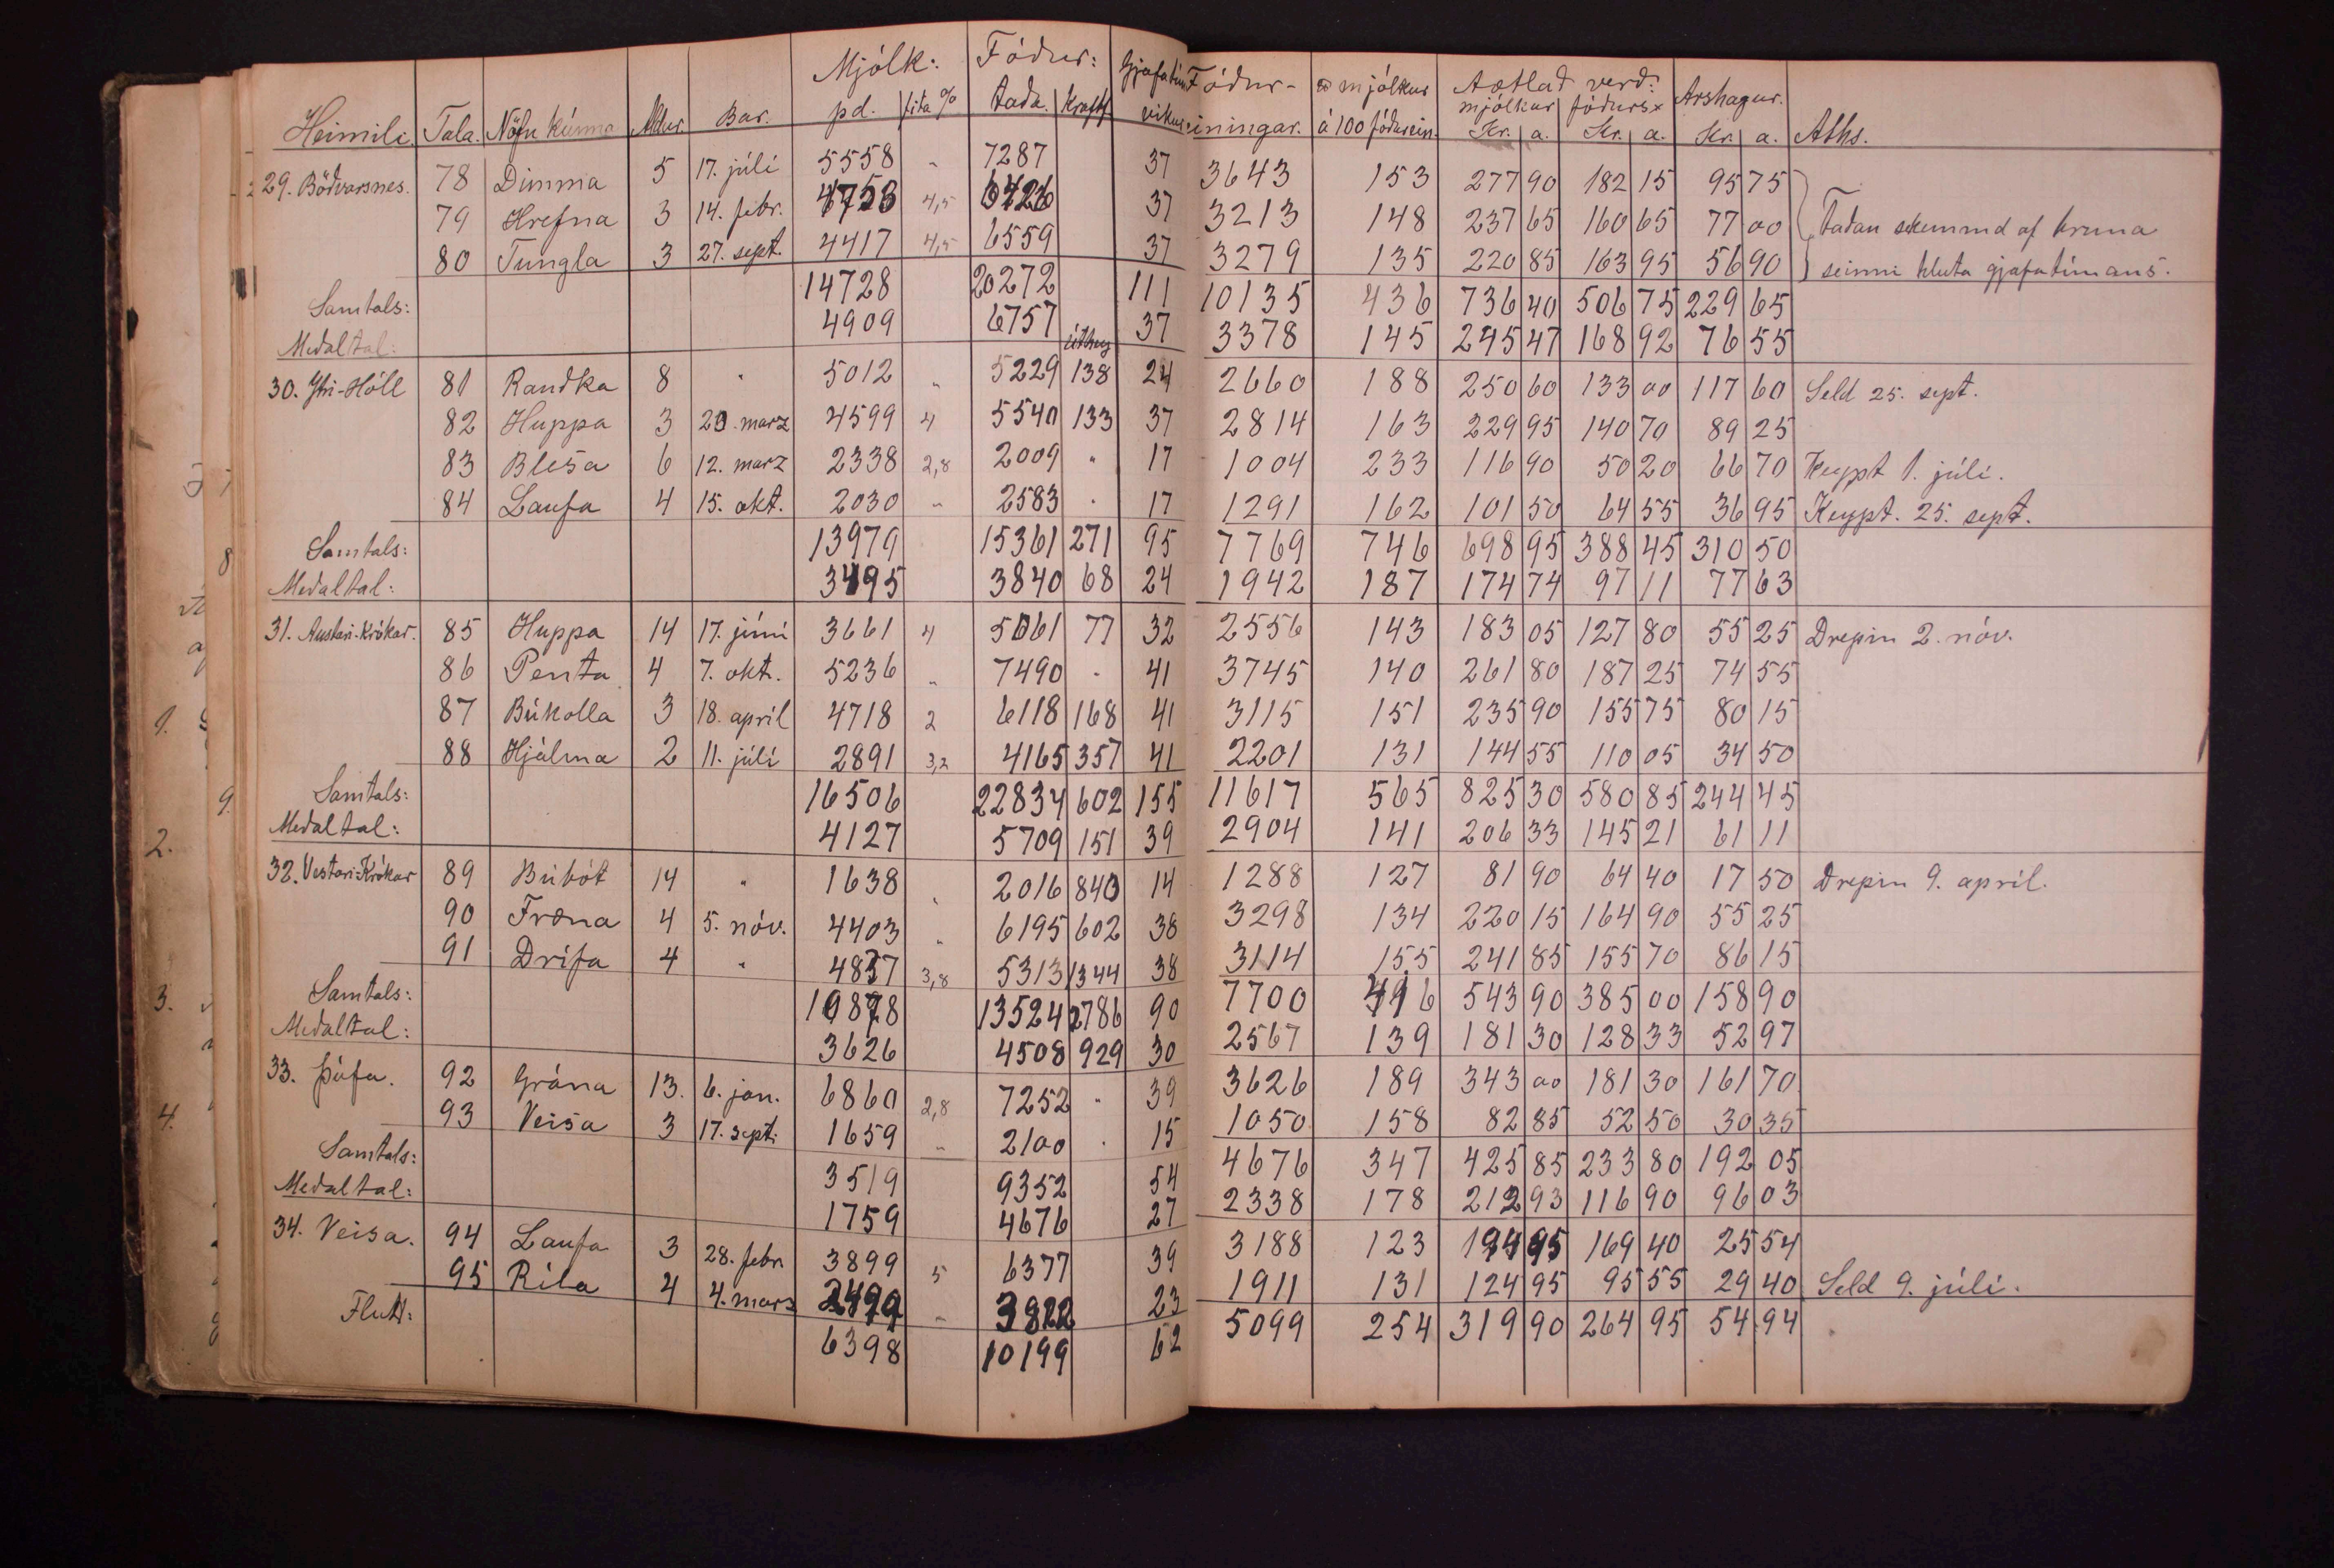 Heimili. Tala. Nöfn kúnna Aldur. Bar. Mjólk: pd. fita % Fóður: taða. Kraftf. Gjafatími vikur Fóður-einingar. mjólkur á 100 fóðurein. Áætlað verð: mjólkur Kr. a. fóðurs Kr. a. Arshagur. Kr. a. Aths.
29. Böðvarsnes. 78 Dimma 5 17. júlí 5558 " 7287 37 3643 153 277 90 182 15 95 75
79 Hrefna 3 14. febr. 4753 4,5 6426 37 3213 148 237 65 160 65 77 00 Taðan skemmd af bruna
80 Tungla 3 27. sept. 4417 4,5 6559 37 3279 135 220 85 163 95 56 90 seinni hluta gjafatímans.
Samtals: 14728 20272 111 10135 436 736 40 506 75 229 65
Meðaltal: 4909 6757 37 3378 145 245 47 168 92 76 55
30. Ytri-Hóll 81 Randka 8 " 5012 " 5229 úthey 138 24 2660 188 250 60 133 00 117 60 Seld 25. sept.
82 Huppa 3 20. marz 4599 4 5540 133 37 2814 163 229 95 140 70 89 25
83 Blesa 6 12. marz 2338 2,8 2009 " 17 1004 233 116 90 50 20 66 70 Keypt 1. júlí.
84 Laufa 4 15. okt. 2030 " 2583 . 17 1291 162 101 50 64 55 36 95 Keypt. 25. sept.
Samtals: 13979 15361 271 95 7769 746 698 95 388 45 310 50
Meðaltal: 3495 3840 68 24 1942 187 174 74 97 11 77 63
31. Austari-Krókar. 85 Huppa 14 17. júní 3661 4 5061 77 32 2556 143 183 05 127 80 55 25 Drepin 2. nóv.
86 Penta 4 7. okt. 5236 " 7490 - 41 3745 140 261 80 187 25 74 55
87 Búkolla 3 18. apríl 4718 2 6118 168 41 3115 151 235 90 155 75 80 15
88 Hjálma 2 11. júlí 2891 3,2 4165 357 41 2201 131 144 55 110 05 34 50
Samtals: 16506 22834 602 155 11617 565 825 30 580 85 244 45
Meðaltal: 4127 5709 151 39 2904 141 206 33 145 21 61 11
32. Vestari-Krókar 89 Búbót 14 " 1638 " 2016 840 14 1288 127 81 90 64 40 17 50 Drepin 9. apríl.
90 Fræna 4 5. nóv. 4403 " 6195 602 38 3298 134 220 15 164 90 55 25
91 Drífa 4 " 4837 3,8 5313 1344 38 3114 155 241 85 155 70 86 15
Samtals: 10878 13524 2786 90 7700 416 543 90 385 00 158 90
Meðaltal: 3626 4508 929 30 2567 139 181 30 128 33 52 97
33. Þúfa. 92 Grána 13. 6. jan. 6860 2,8 7252 " 39 3626 189 343 00 181 30 161 70
93 Veisa 3 17. sept. 1659 " 2100 . 15 1050 158 82 85 52 50 30 35
Samtals: 3519 9352 54 4676 347 425 85 233 80 192 05
Meðaltal: 1759 4676 27 2338 178 212 93 116 90 96 03
34. Veisa. 94 Laufa 3 28. febr. 3899 5 6377 39 3188 123 194 95 169 40 25 54
95 Ríla 4 4. mars 2499 " 3822 23 1911 131 124 95 95 55 29 40 Seld 9. júlí.
Flutt: 6398 10199 62 5099 254 319 90 264 95 54 94